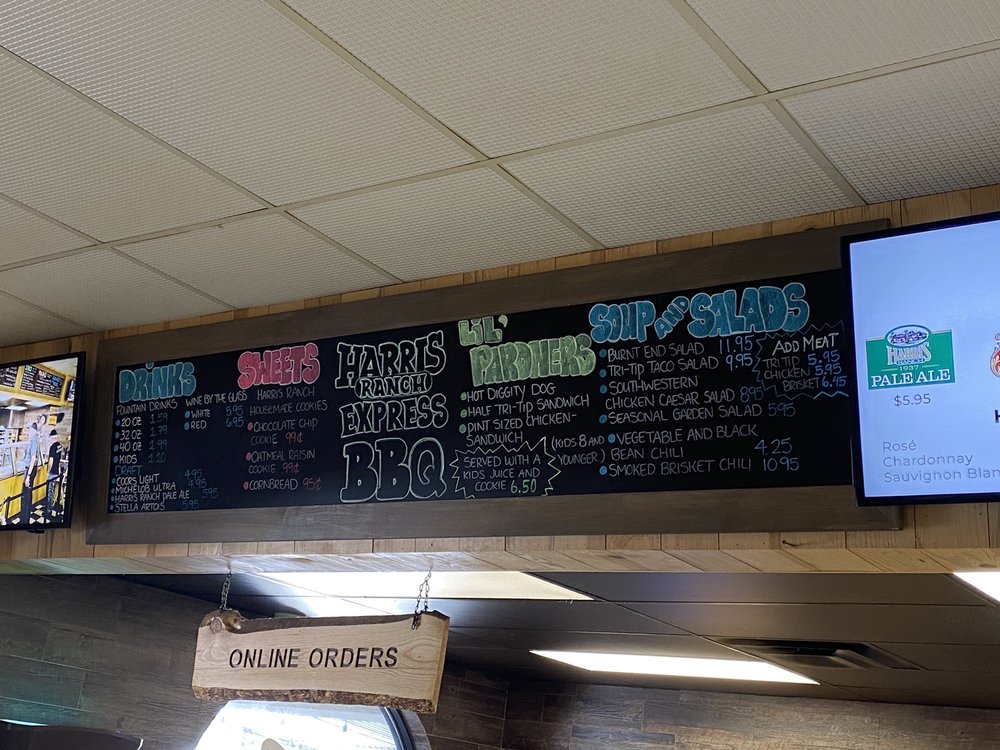 DRINKS
FOUNTAIN DRINKS
20 OZ
32 OZ 1.79
40 OZ 1.99
KIDS 1.10
DRAFT
COORS LIGHT 4.95
MICHELOB ULTRA 4.95
HARRIS RANCH PALE ALE 5.95
STELLA ARTOIS 5.95
WINE BY THE GLASS
WHITE 5.95
RED 6.95
SWEETS
HARRIS RANCH
HOUSEMADE COOKIES
CHOCOLATE CHIP
COOKIE 99¢
OATMEAL RAISIN
COOKIE 99¢
CORNBREAD 95¢
HARRIS
RANCH
EXPRESS
BBQ
LIL'
PARDNERS
HOT DIGGITY DOG
HALF TRI-TIP SANDWICH
PINT SIZED CHICKEN-
SANDWICH
(KIDS 8 AND
YOUNGER)
SERVED WITH A
KIDS JUICE AND
COOKIE 6.50
SOUP AND SALADS
BURNT END SALAD 11.95
TRI-TIP TACO SALAD 9.95
SOUTHWESTERN
CHICKEN CAESAR SALAD 8.95
SEASONAL GARDEN SALAD 5.95
VEGETABLE AND BLACK
BEAN CHILI 4.25
SMOKED BRISKET CHILI 10.95
ADD MEAT
TRI-TIP 5.95
CHICKEN 5.95
BRISKET 6.45
HARRIS
RANCH
1937
PALE ALE
$5.95
Rosé
Chardonnay
Sauvignon Blan
ONLINE ORDERS